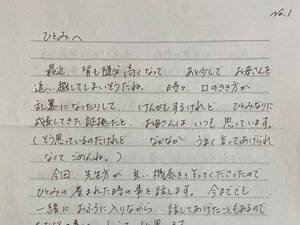 No.1
ひとみへ
最近 背も随分高くなって あと少しで お母さんを
追い越してしまいそうだね。 時々 口のきき方が
乱暴になったりして、 けんかもするけれど ひとみなりに
成長してきた証拠だと お母さんは いつも 思っています。
(そう思っているのだけれど なかなか うまく言ってあげられ
なくて ごめんね。)
今回 先生方が 良い機会を作ってくださったので
ひとみの産まれた時の事を話します。 今までも
一緒に おふろに入りながら 話してあげたこともあるので